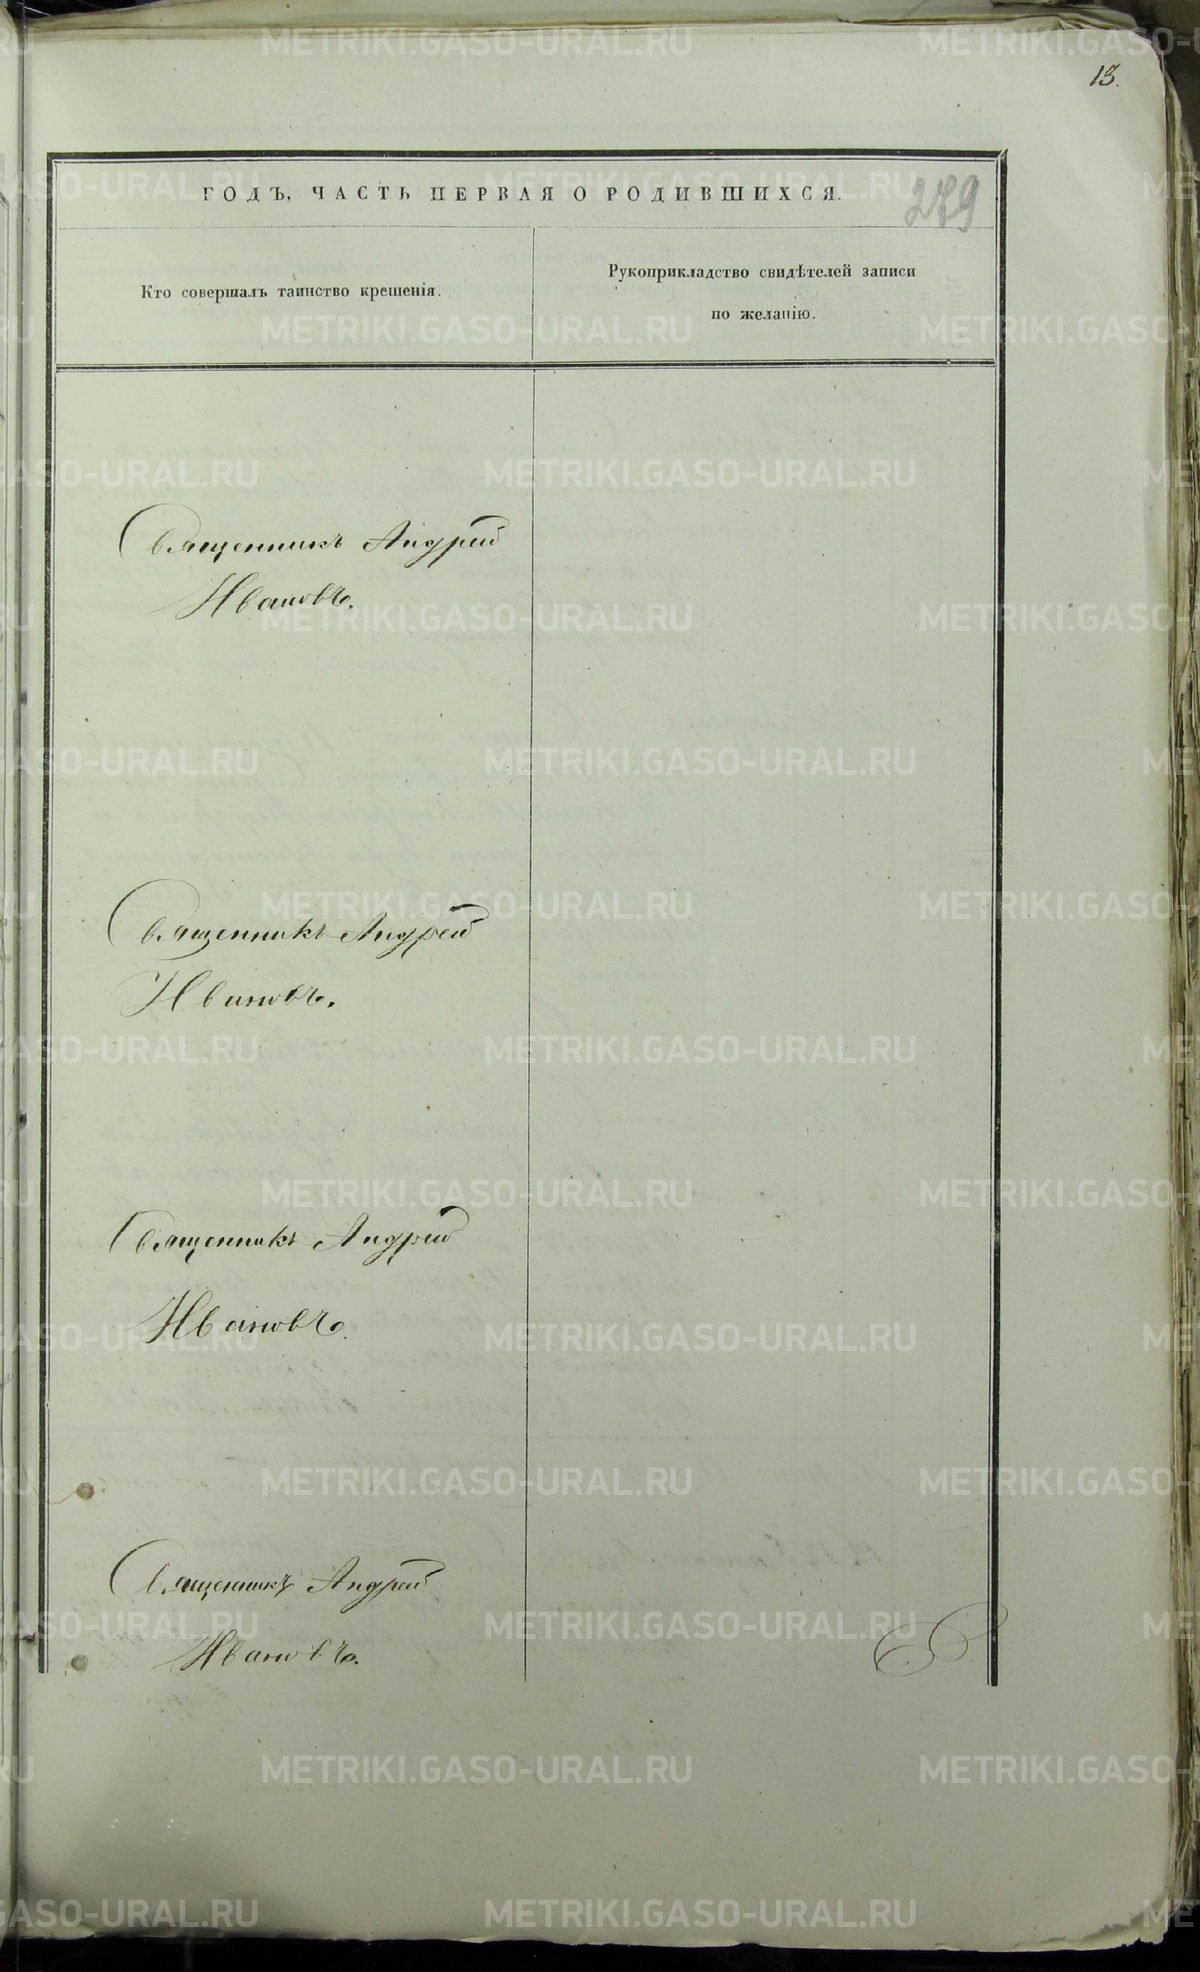 13.
ГОДЪ, ЧАСТЬ ПЕРВАЯ О РОДИВШИХСЯ.
279
Кто совершалъ таинство крещенія.
Рукоприкладство свидѣтелей записи
по желанію.
Священникъ Андрей
Ивановъ.
Священникъ Андрей
Ивановъ.
Священникъ Андрей
Ивановъ.
Священникъ Андрей
Ивановъ.
METRIKI.GASO-URAL.RU